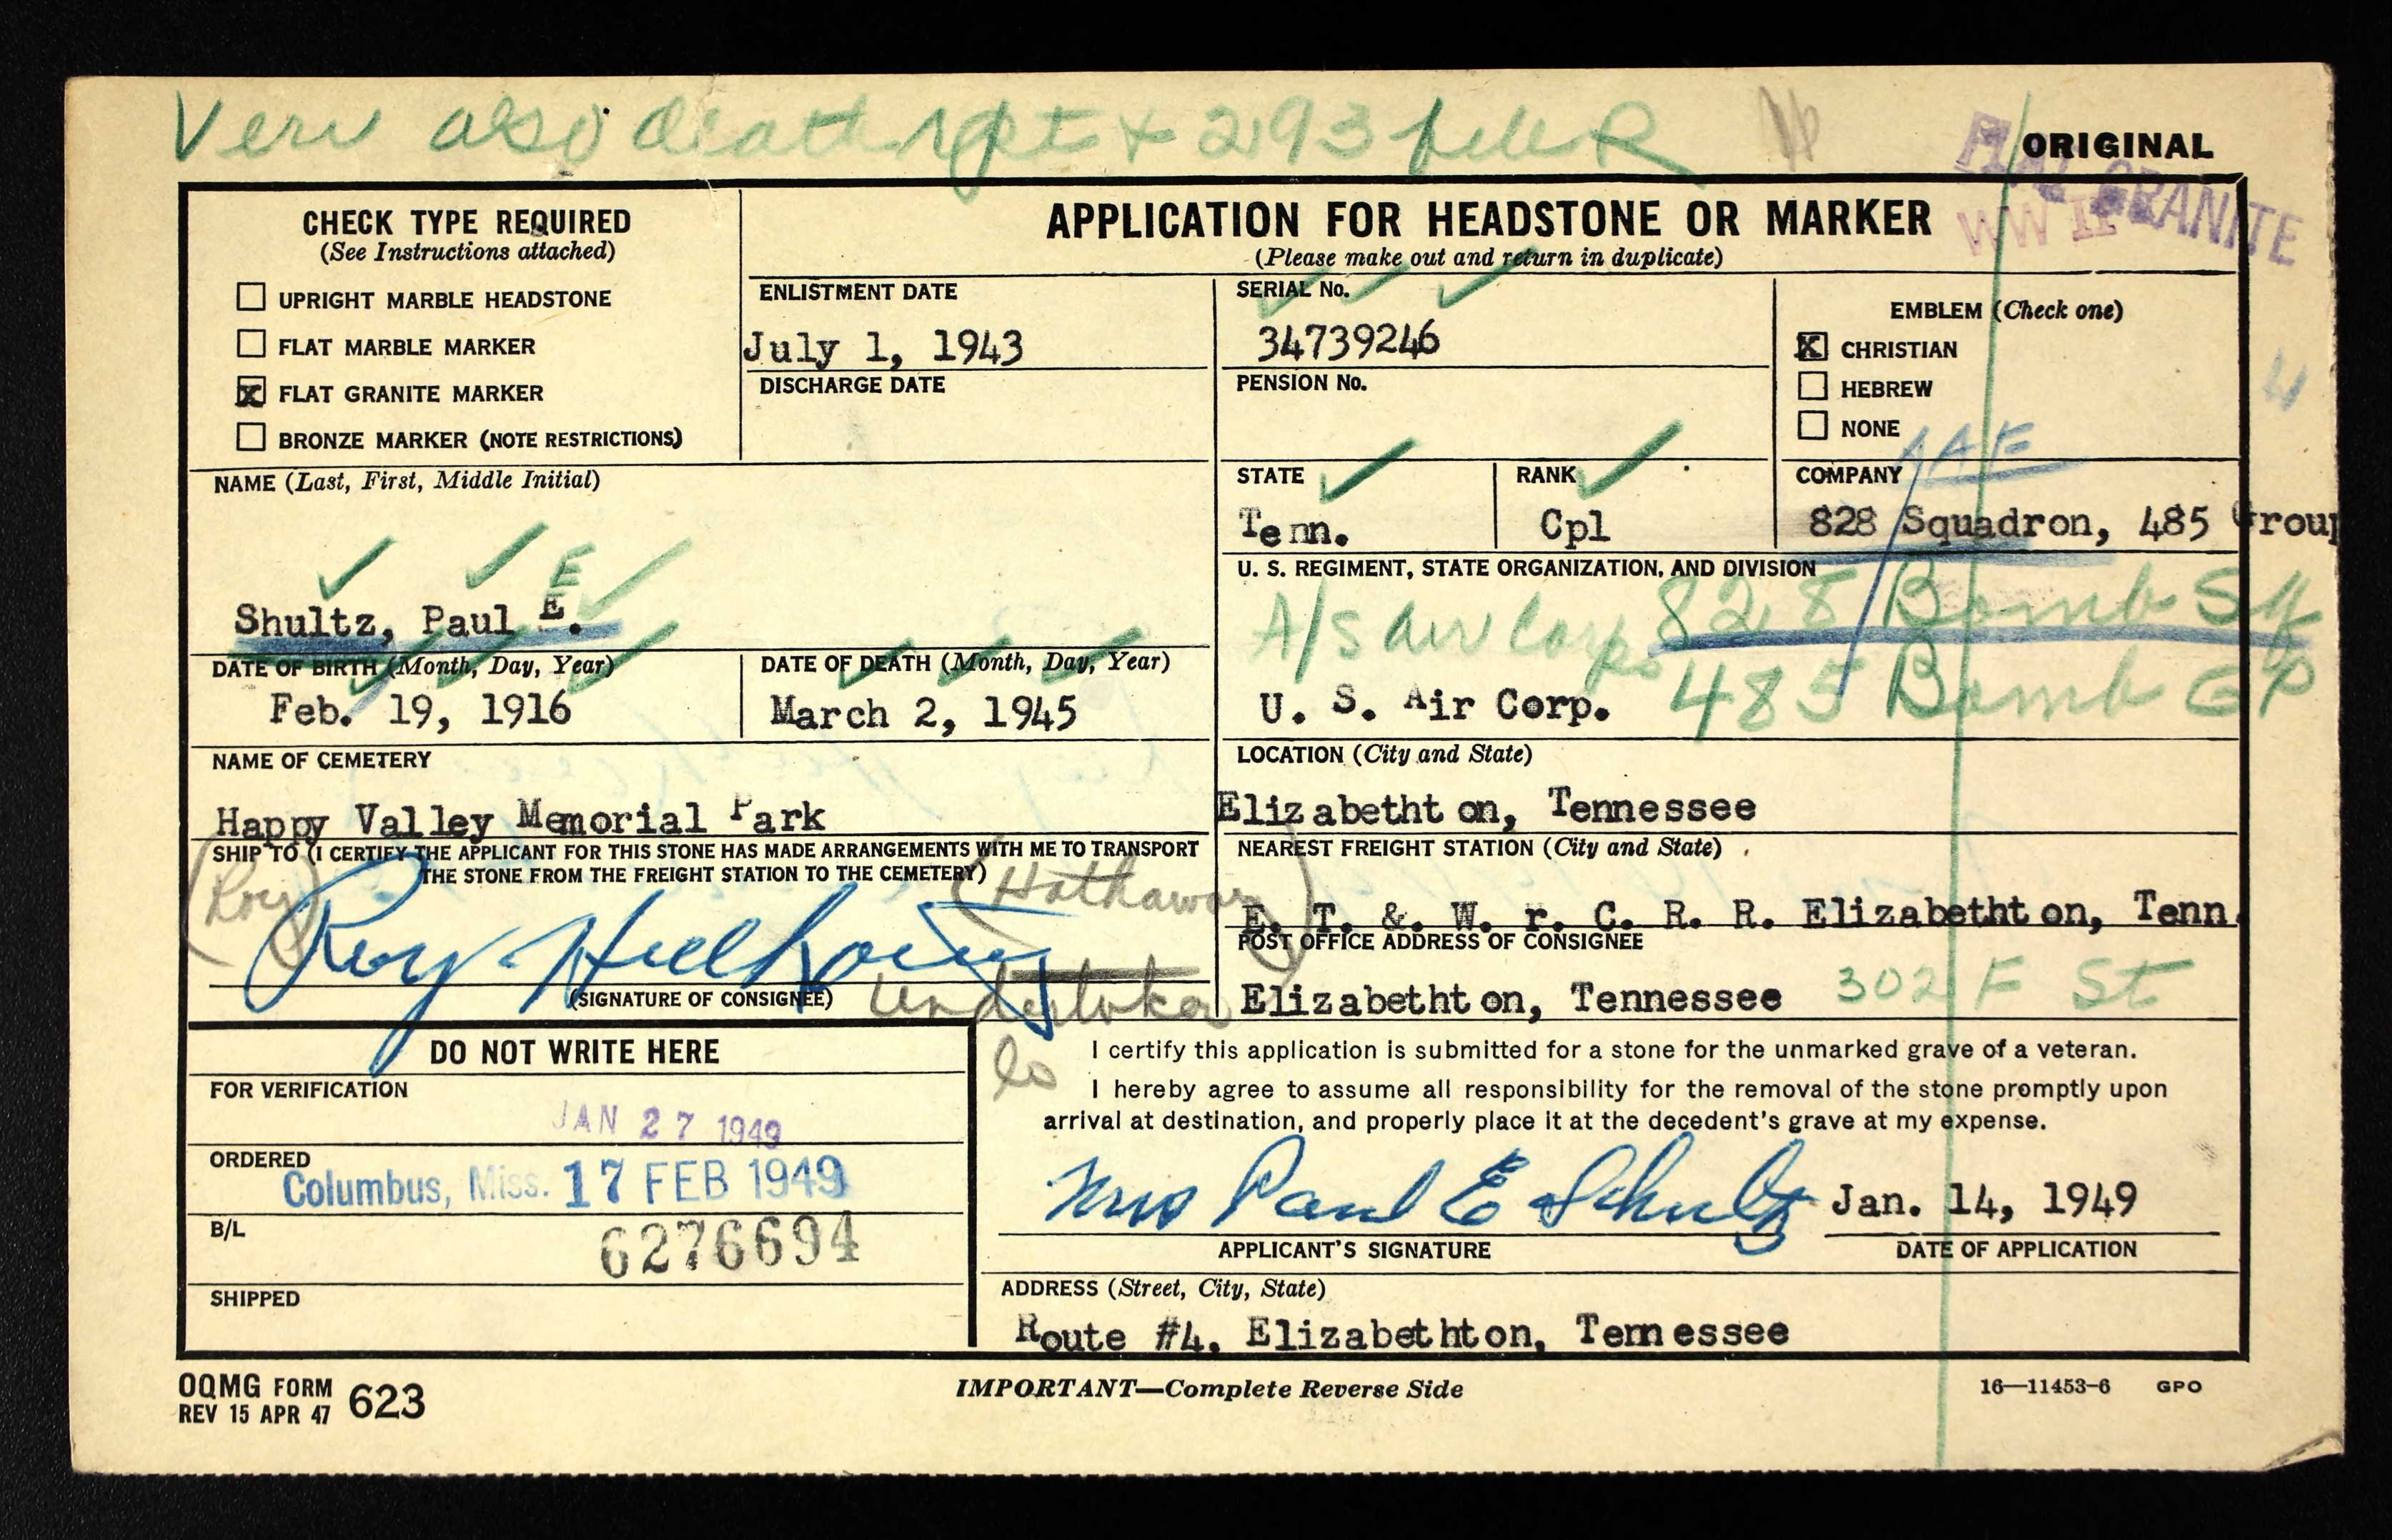 Veri also death rpt + 293 file R
ORIGINAL
FLAT GRANITE
WW II
CHECK TYPE REQUIRED
(See Instructions attached)
UPRIGHT MARBLE HEADSTONE
FLAT MARBLE MARKER
X FLAT GRANITE MARKER
BRONZE MARKER (NOTE RESTRICTIONS)
APPLICATION FOR HEADSTONE OR MARKER
(Please make out and return in duplicate)
ENLISTMENT DATE
July 1, 1943
DISCHARGE DATE
SERIAL No.
34739246
PENSION No.
EMBLEM (Check one)
X CHRISTIAN
HEBREW
NONE
NAME (Last, First, Middle Initial)
E
Shultz, Paul E.
STATE
Tenn.
RANK
Cpl
COMPANY
AAF
828 Squadron, 485 Group
U. S. REGIMENT, STATE ORGANIZATION, AND DIVISION
A/S Air Corps 828 Bomb Sq
U. S. Air Corp. 485 Bomb GP
DATE OF BIRTH (Month, Day, Year)
Feb. 19, 1916
DATE OF DEATH (Month, Day, Year)
March 2, 1945
NAME OF CEMETERY
Happy Valley Memorial Park
LOCATION (City and State)
Elizabethton, Tennessee
SHIP TO (I CERTIFY THE APPLICANT FOR THIS STONE HAS MADE ARRANGEMENTS WITH ME TO TRANSPORT
THE STONE FROM THE FREIGHT STATION TO THE CEMETERY)
(Roy) (Hathaway)
Roy Hathaway
(SIGNATURE OF CONSIGNEE) Undertaker
Co
NEAREST FREIGHT STATION (City and State)
E. T. & W. r. C. R. R. Elizabethton, Tenn.
POST OFFICE ADDRESS OF CONSIGNEE
Elizabethton, Tennessee 302 F St
DO NOT WRITE HERE
FOR VERIFICATION
JAN 27 1949
ORDERED
Columbus, Miss. 17 FEB 1949
B/L
6276694
SHIPPED
I certify this application is submitted for a stone for the unmarked grave of a veteran.
I hereby agree to assume all responsibility for the removal of the stone promptly upon
arrival at destination, and properly place it at the decedent's grave at my expense.
Mrs Paul E Shultz Jan. 14, 1949
APPLICANT'S SIGNATURE DATE OF APPLICATION
ADDRESS (Street, City, State)
Route #4, Elizabethton, Tennessee
OQMG FORM 623
REV 15 APR 47
IMPORTANT—Complete Reverse Side
16—11453-6 GPO